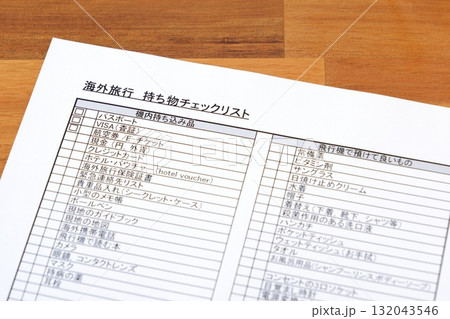 海外旅行 持ち物チェックリスト
機内持ち込み品
パスポート
VISA(査証)
航空券 Eチケット
現金(円 外貨)
クレジットカード
ホテル・バウチャー(hotel voucher)
海外旅行保険証書
緊急連絡先リスト
貴重品入れ(シークレット・ケース)
小型のメモ帳
ボールペン
現地のガイドブック
現地の地図
海外携帯電話
飛行機で読む本
カメラ
眼鏡 コンタクトレンズ
マスク
持病の薬
耳栓
飛行機で預けて良いもの
常備薬
ビタミン剤
サングラス
日焼け止めクリーム
水着
帽子
着替え(下着、靴下、シャツ等)
殺菌作用のある漱口液
ハンカチ
ポケットティッシュ
ウェットティッシュ(お手拭)
タオル
お風呂用品(シャンプーリンス、ボディーソープ)
コンセントの3口ソケット
132043546